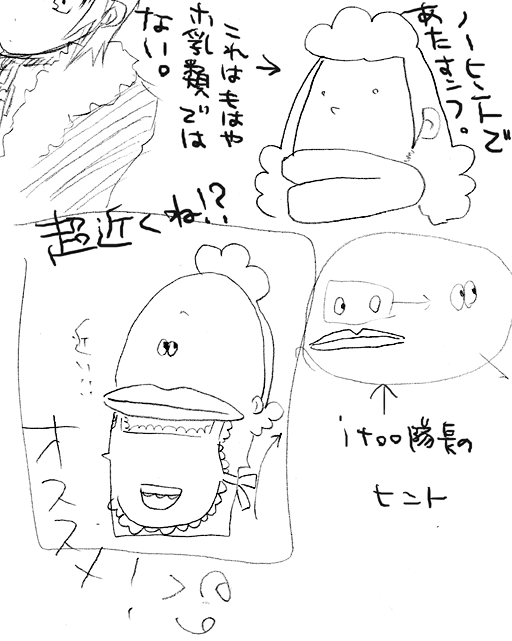 ノーヒントで
あたすンフ。
これはもはや
ホ乳類では
ない。
超近くね!?
近い…
itoo隊長の
ヒント
オススメ!